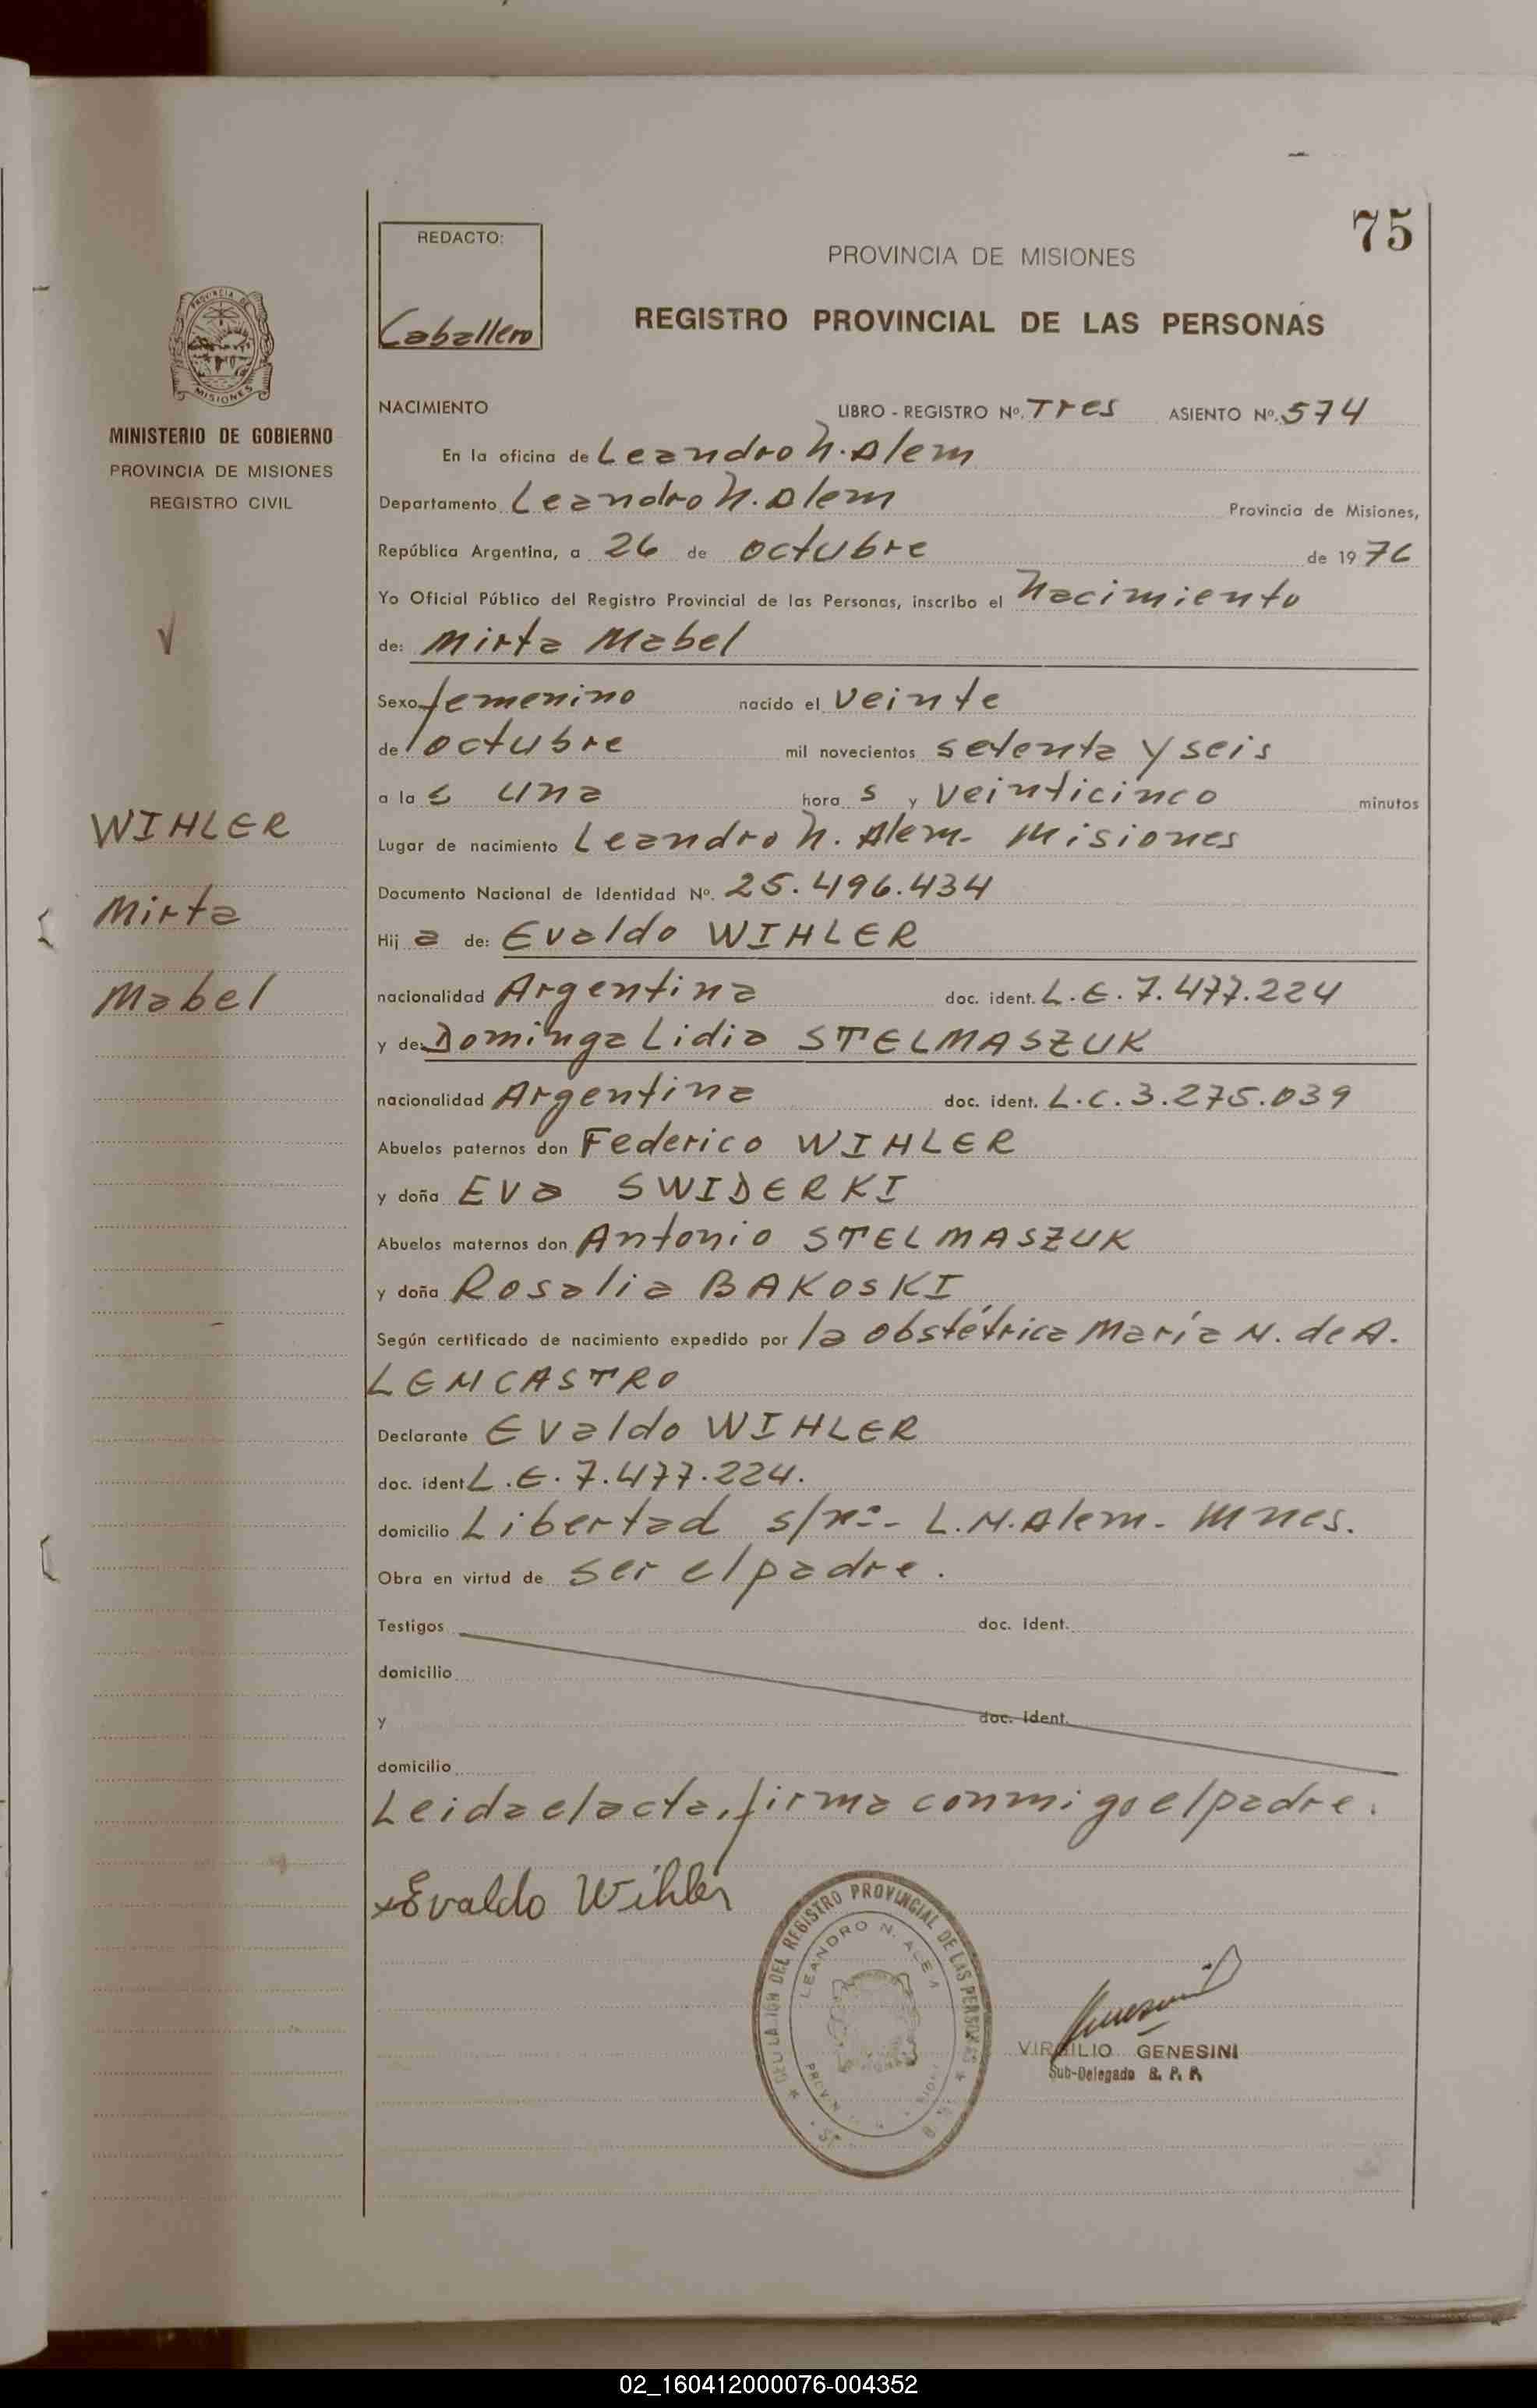 75
REDACTO:
Caballero
PROVINCIA DE MISIONES
REGISTRO PROVINCIAL DE LAS PERSONAS
PROVINCIA DE
MISIONES
MINISTERIO DE GOBIERNO
PROVINCIA DE MISIONES
REGISTRO CIVIL
WIHLER
Mirta
Mabel
NACIMIENTO LIBRO - REGISTRO Nº. Tres ASIENTO Nº. 574
En la oficina de Leandro N. Alem
Departamento Leandro N. Alem Provincia de Misiones,
República Argentina, a 26 de octubre de 1976
Yo Oficial Público del Registro Provincial de las Personas, inscribo el Nacimiento
de: Mirta Mabel
Sexo femenino nacido el veinte
de octubre mil novecientos setenta y seis
a la s una hora s y veinticinco minutos
Lugar de nacimiento Leandro N. Alem - Misiones
Documento Nacional de Identidad Nº. 25.496.434
Hij a de: Evaldo WIHLER
nacionalidad Argentina doc. ident. L.E. 7.477.224
y de: Dominga Lidia STELMASZUK
nacionalidad Argentina doc. ident. L.C. 3.275.039
Abuelos paternos don Federico WIHLER
y doña Eva SWIDERKI
Abuelos maternos don Antonio STELMASZUK
y doña Rosalia BAKOSKI
Según certificado de nacimiento expedido por la obstétrica María N. de A.
LENCASTRO
Declarante Evaldo WIHLER
doc. ident L.E. 7.477.224.
domicilio Libertad s/nº- L.N. Alem - Mnes.
Obra en virtud de ser el padre.
Testigos doc. ident.
domicilio
y doc. ident.
domicilio
Leida el acta, firma conmigo el padre.
Evaldo Wihler
DEL REGISTRO PROVINCIAL DE LAS PERSONAS
LEANDRO N. ALEM
VIRGILIO GENESINI
Sub-Delegado R. P. P.
02_160412000076-004352